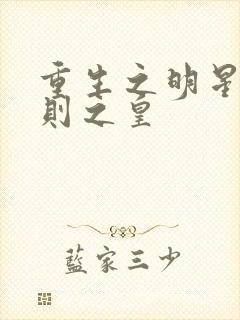 重生之明星
則之皇
藍家三少